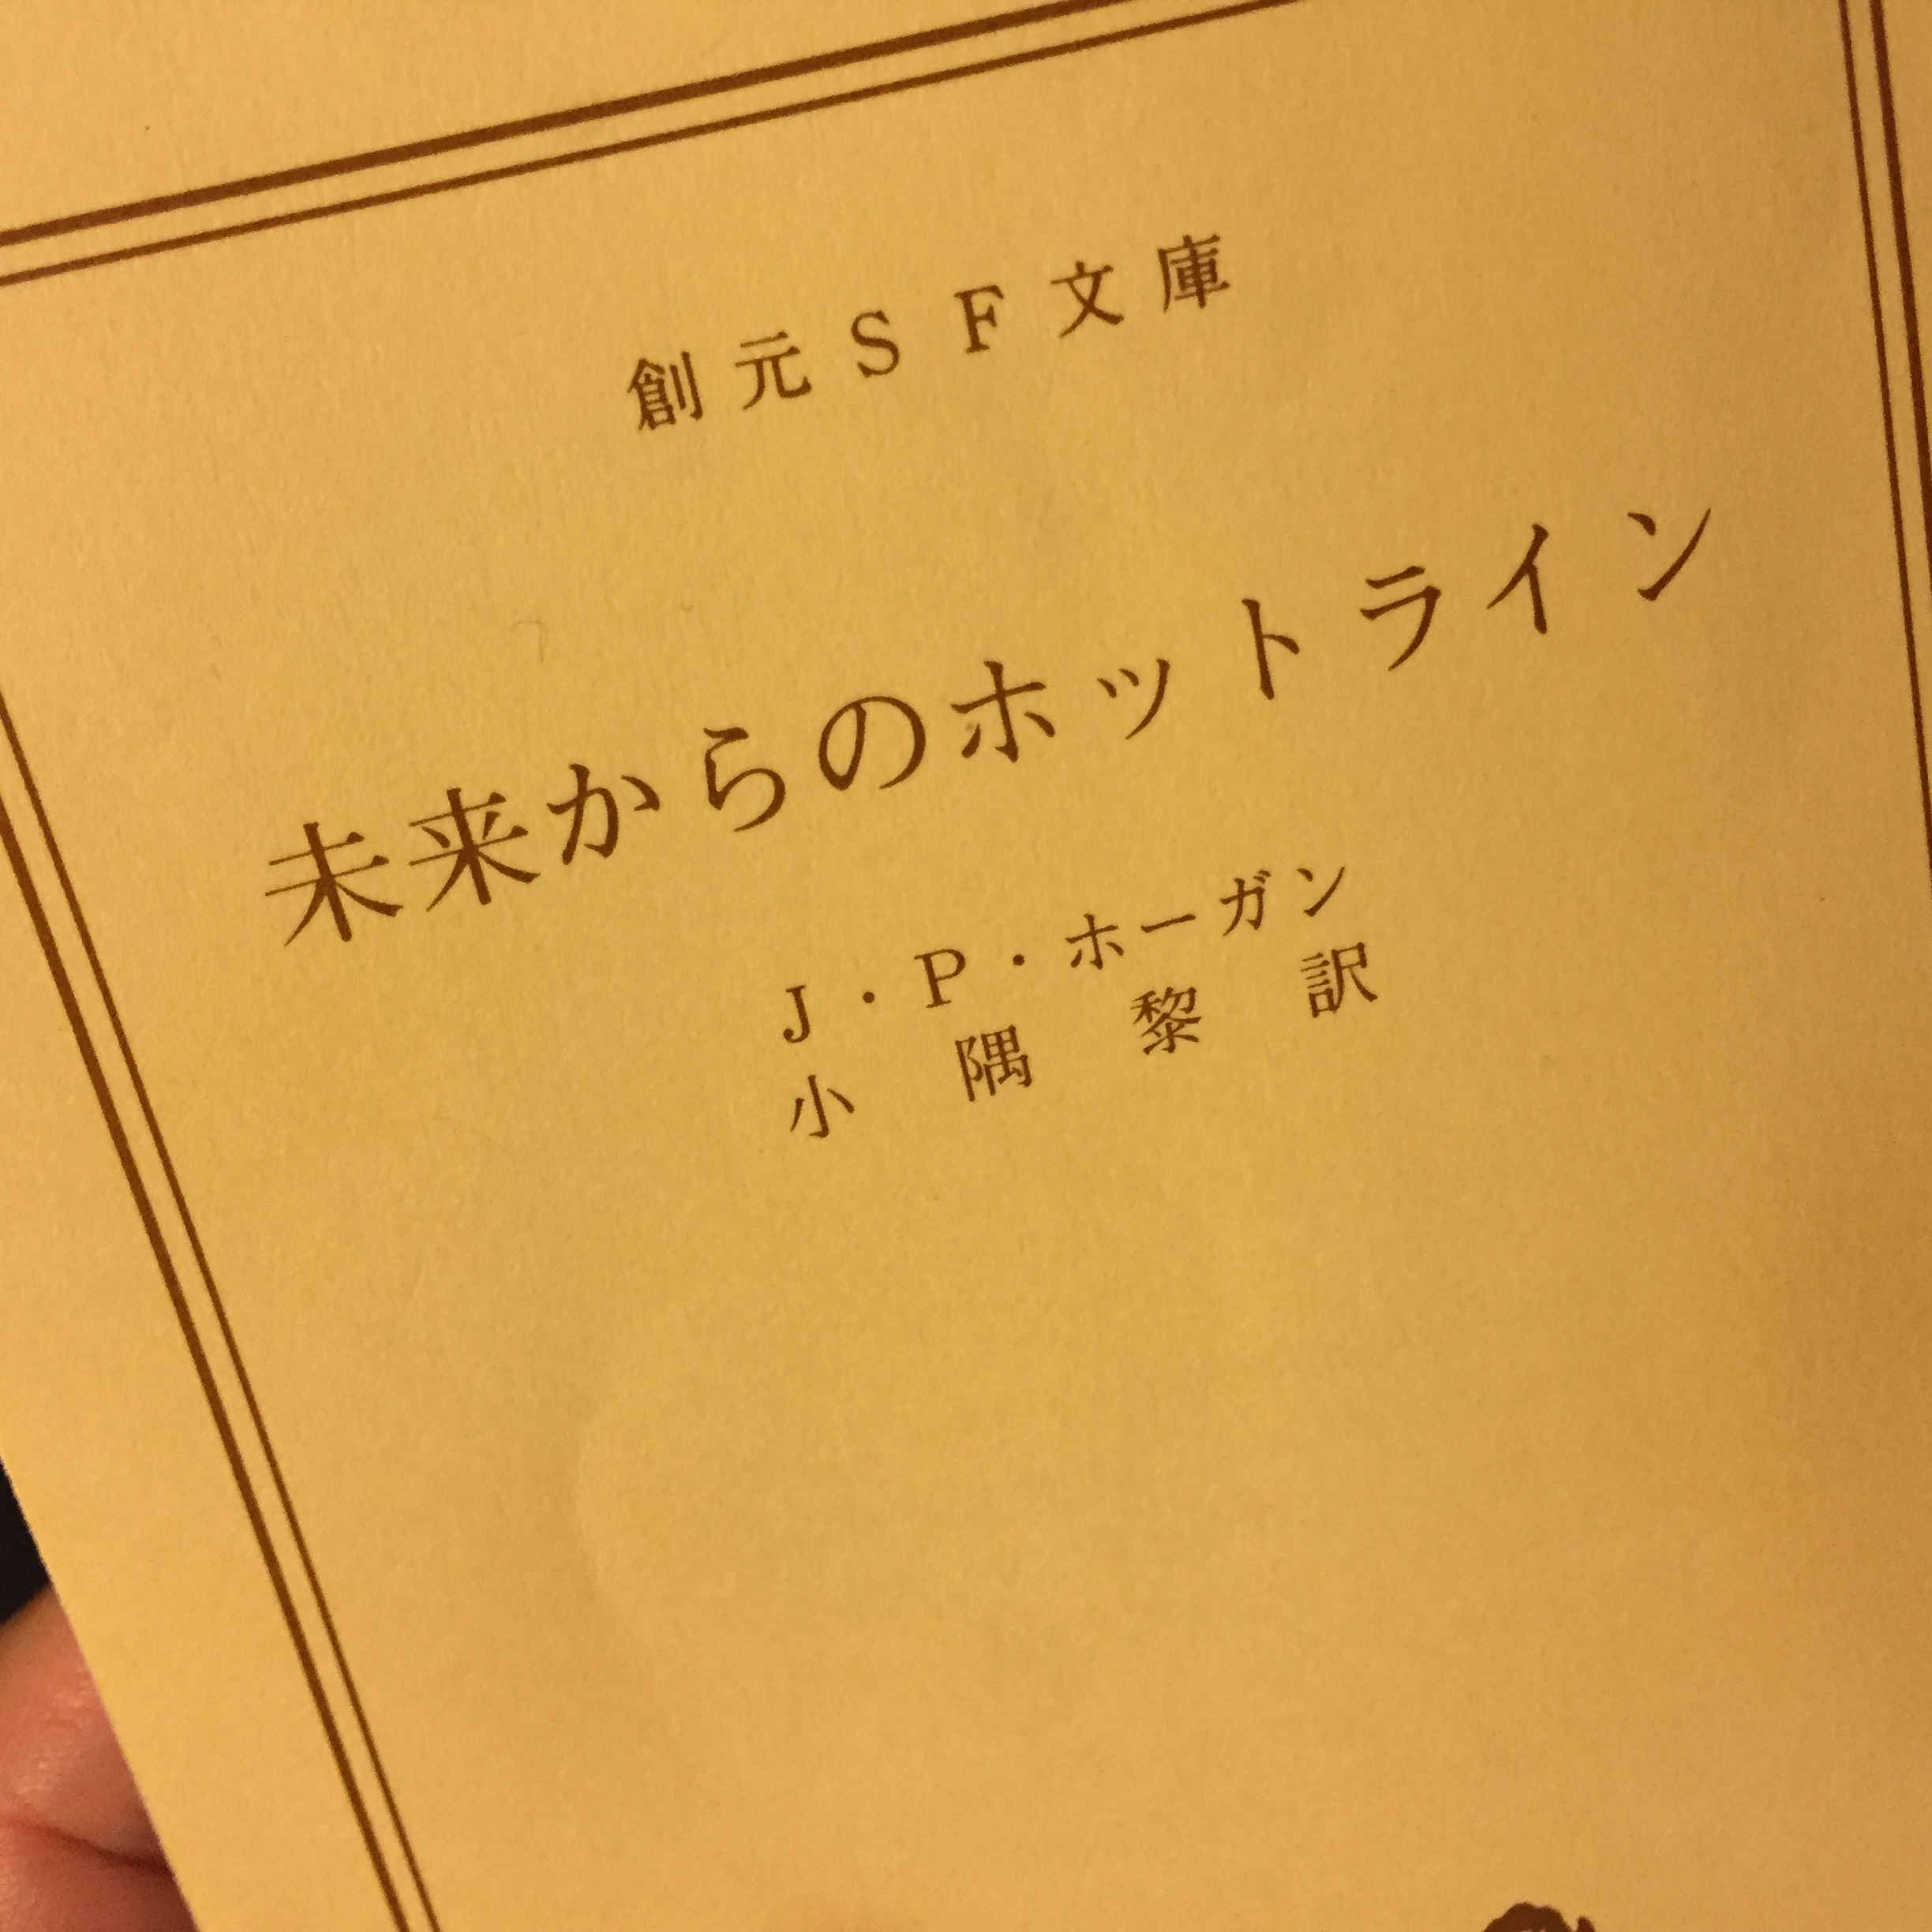 創元SF文庫
未来からのホットライン
J・P・ホーガン
小隅 黎 訳